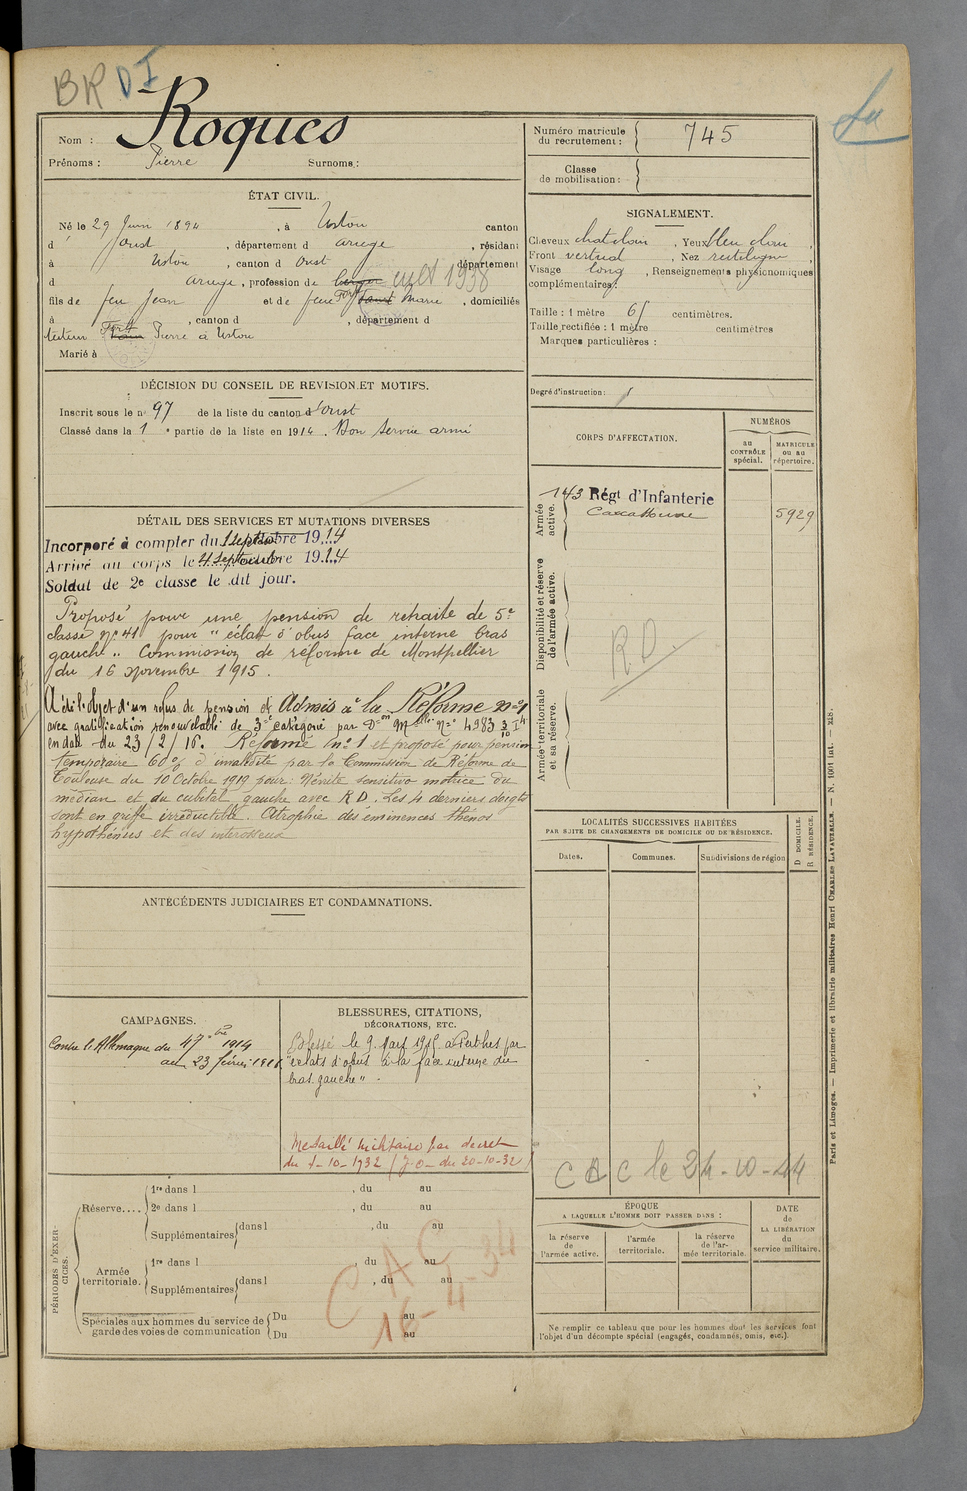 BR DI
Nom : Roques
Prénoms : Pierre Surnoms :
Numéro matricule du recrutement : 745
Classe de mobilisation :
ÉTAT CIVIL.
Né le 29 Juin 1894, à Ustou canton
d'Oust, département d Ariège, résidant
à Ustou, canton d Oust département
d Ariège, profession de berger cult 1938
fils de feu Jean et de feue Fort Marie, domiciliés
à , canton d , département d
tuteur Fort Pierre à Ustou
Marié à
SIGNALEMENT.
Cheveux chat clair, Yeux bleu clair,
Front vertical, Nez rectiligne,
Visage long, Renseignements physionomiques
complémentaires :
Taille : 1 mètre 61 centimètres.
Taille rectifiée : 1 mètre centimètres
Marques particulières :
Degré d'instruction :
DÉCISION DU CONSEIL DE REVISION ET MOTIFS.
Inscrit sous le n° 97 de la liste du canton d'Oust
Classé dans la 1e partie de la liste en 1914. Bon service armé
CORPS D'AFFECTATION.
NUMÉROS
au CONTRÔLE spécial.
MATRICULE ou au répertoire.
Armée active.
143 Régt d'Infanterie
Carcassonne
5929
Disponibilité et réserve de l'armée active.
RD.
Armée territoriale et sa réserve.
DÉTAIL DES SERVICES ET MUTATIONS DIVERSES
Incorporé à compter du 1 septembre 1914
Arrivé au corps le 4 septembre 1914
Soldat de 2e classe le dit jour.
Proposé pour une pension de retraite de 5e
classe N° 41 pour "éclat d'obus face interne bras
gauche". Commission de réforme de Montpellier
du 16 Novembre 1915.
A été l'objet d'un refus de pension et Admis à la Réforme n°1
avec gratification renouvelable de 3e catégorie par Don Mlle N° 4983
en date du 23/2/16. Réformé n°1 et proposé pour pension
temporaire 60% d'invalidité par la Commission de Réforme de
Toulouse du 10 Octobre 1919 pour : Névrite sensitivo motrice du
médian et du cubital gauche avec RD. Les 4 derniers doigts
sont en griffe irréductible. Atrophie des éminences thénar
hypothénars et des interosseux
LOCALITÉS SUCCESSIVES HABITÉES
PAR SUITE DE CHANGEMENTS DE DOMICILE OU DE RÉSIDENCE.
Dates. Communes. Subdivisions de région
D DOMICILE. R RÉSIDENCE.
ANTÉCÉDENTS JUDICIAIRES ET CONDAMNATIONS.
CAMPAGNES.
Contre l'Allemagne du 1914
au 23 février 1916
BLESSURES, CITATIONS,
DÉCORATIONS, ETC.
Blessé le 9 Mars 1915 à Perthes par
"éclats d'obus à la face interne du
bras gauche".
Médaillé militaire par décret
du 1-10-1932 (J.O. du 20-10-32)
C A C le 24-10-44
PÉRIODES D'EXERCICES.
Réserve....
1re dans l , du au
2e dans l , du au
Supplémentaires dans l , du au
Armée territoriale.
1re dans l , du au
Supplémentaires dans l , du au
Spéciales aux hommes du service de garde des voies de communication
Du au
Du au
CAC
16-4-34
ÉPOQUE
A LAQUELLE L'HOMME DOIT PASSER DANS :
la réserve de l'armée active.
l'armée territoriale.
la réserve de l'armée territoriale.
DATE de LA LIBÉRATION du service militaire.
Ne remplir ce tableau que pour les hommes dont les services font
l'objet d'un décompte spécial (engagés, condamnés, omis, etc.).
Paris et Limoges. — Imprimerie et librairie militaires Henri CHARLES-LAVAUZELLE. — N. 1001 int. — BIS.